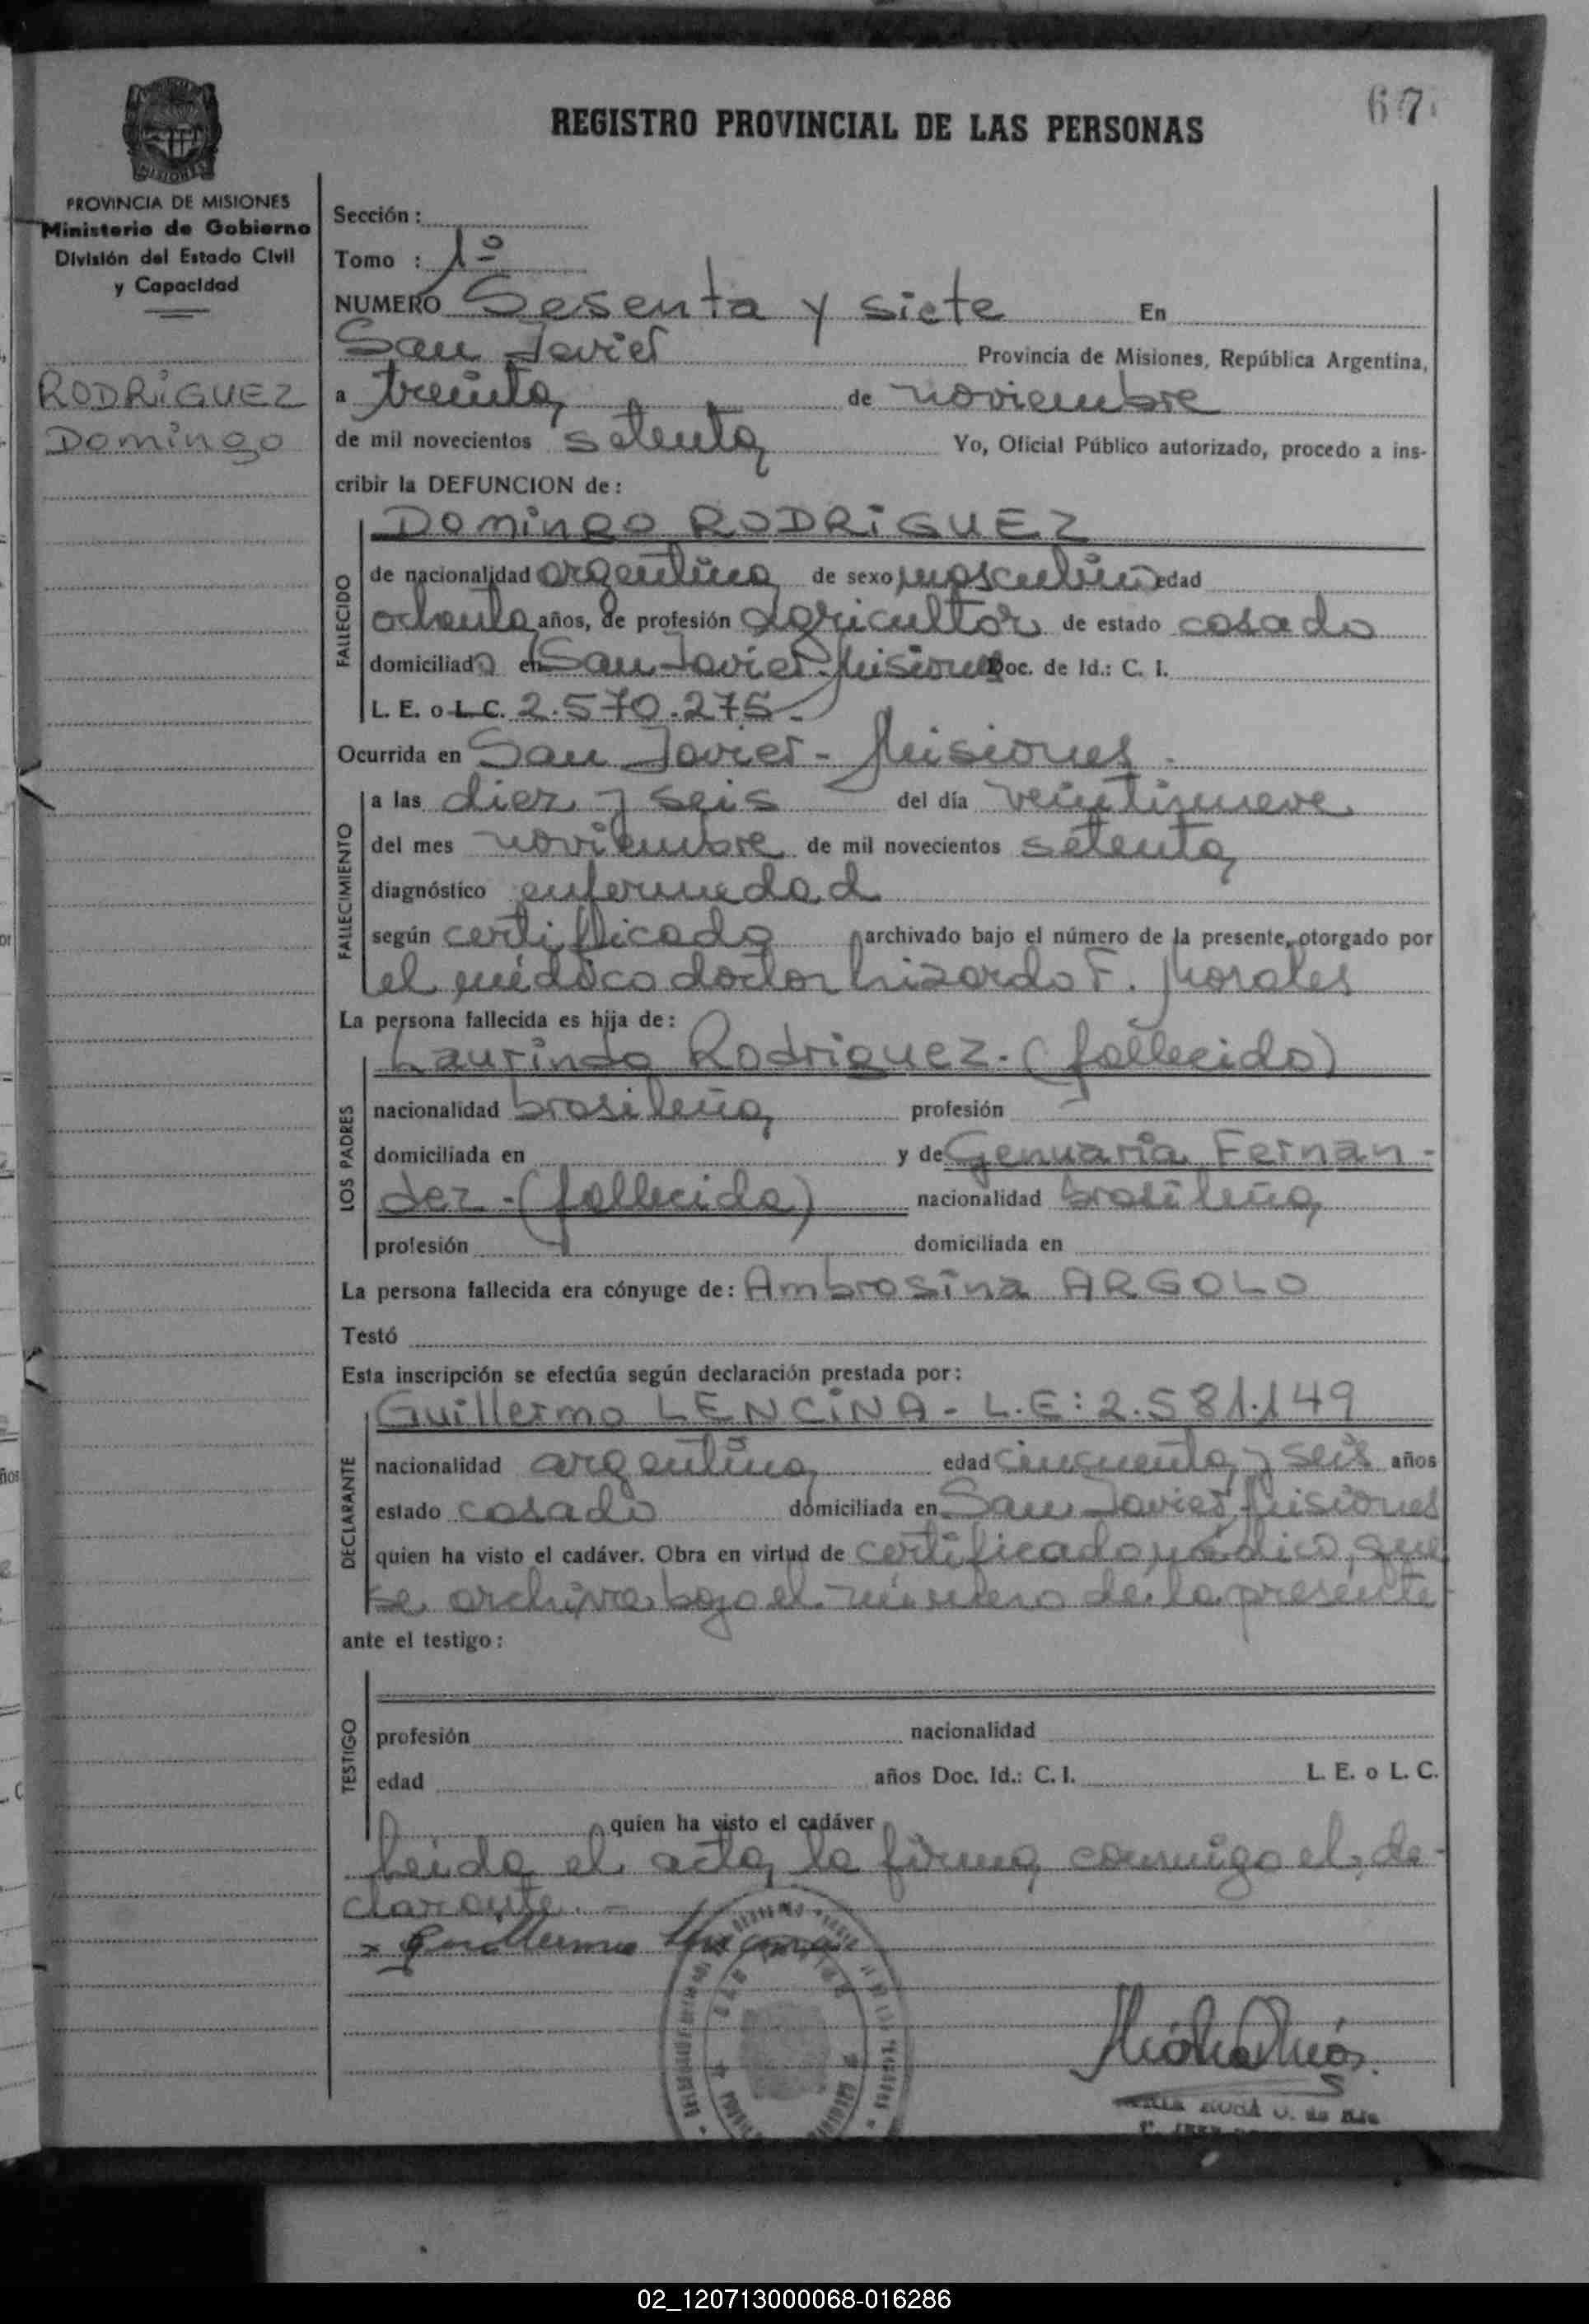 67
REGISTRO PROVINCIAL DE LAS PERSONAS
MISIONES
PROVINCIA DE MISIONES
Ministerio de Gobierno
División del Estado Civil
y Capacidad
RODRiGUEZ
Domingo
Sección :
Tomo : 1º
NUMERO Sesenta y siete En
San Javier Provincia de Misiones, República Argentina,
a treinta de noviembre
de mil novecientos setenta Yo, Oficial Público autorizado, procedo a ins-
cribir la DEFUNCION de :
Domingo RODRiGUEZ
FALLECIDO
de nacionalidad argentina de sexo masculino edad
ochenta años, de profesión agricultor de estado casado
domiciliado en San Javier Misiones Doc. de Id.: C. I.
L. E. o L.C. 2.570.275.-
Ocurrida en San Javier - Misiones -
FALLECIMIENTO
a las diez y seis del día veintinueve
del mes noviembre de mil novecientos setenta
diagnóstico enfermedad
según certificado archivado bajo el número de la presente, otorgado por
el médico doctor Lizardo F. Morales
La persona fallecida es hija de :
LOS PADRES
Laurindo Rodriguez.- (fallecido)
nacionalidad brasileña profesión
domiciliada en y de Genuaria Fernan-
dez - (fallecida) nacionalidad brasileña
profesión domiciliada en
La persona fallecida era cónyuge de : Ambrosina ARGOLO
Testó
Esta inscripción se efectúa según declaración prestada por :
DECLARANTE
Guillermo LENCiNA - L.E: 2.581.149
nacionalidad argentina edad cincuenta y seis años
estado casado domiciliada en San Javier, Misiones
quien ha visto el cadáver. Obra en virtud de certificado médico, que
se archiva bajo el número de la presente
ante el testigo :
TESTIGO
profesión nacionalidad
edad años Doc. Id.: C. I. L. E. o L. C.
quien ha visto el cadáver
Leida el acta, la firma conmigo el de-
clarante. -
x Guillermo
02_120713000068-016286